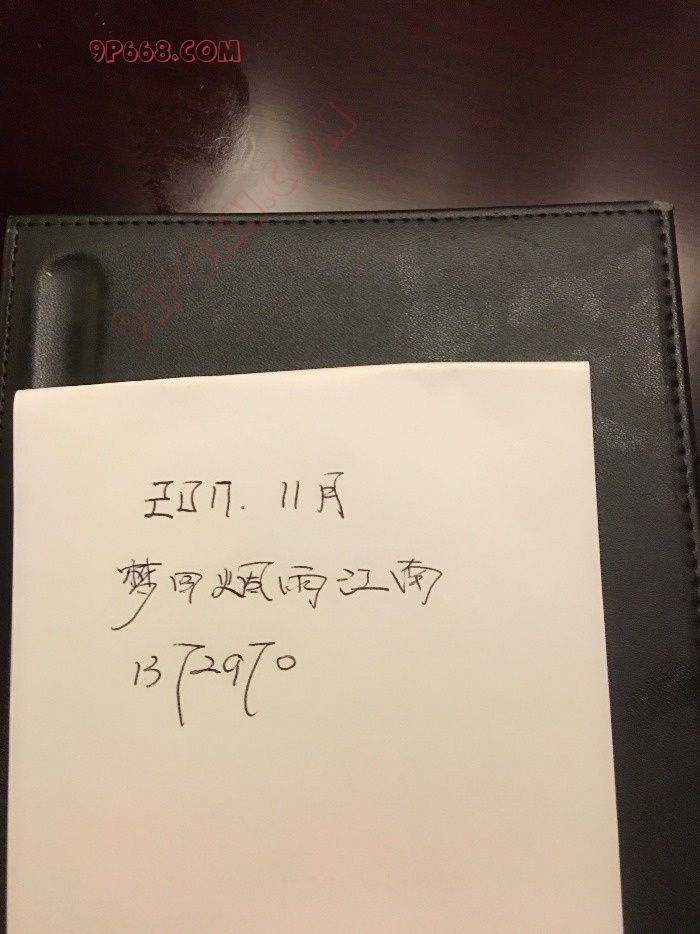 9P668.COM
2017. 11月
梦回烟雨江南
1372970